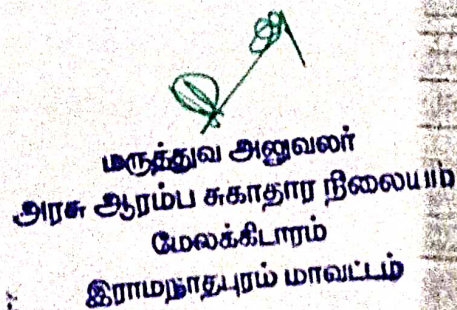 மருத்துவ அலுவலர்
அரசு ஆரம்ப சுகாதார நிலையம்
மேலக்கிடாரம்
இராமநாதபுரம் மாவட்டம்